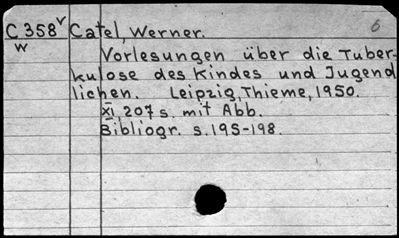 C 358v Catel, Werner. 6
w
Vorlesungen über die Tuber-
kulose des Kindes und Jugend
lichen. Leipzig, Thieme, 1950.
XI, 207 s. mit Abb.
Bibliogr. s. 195-198.